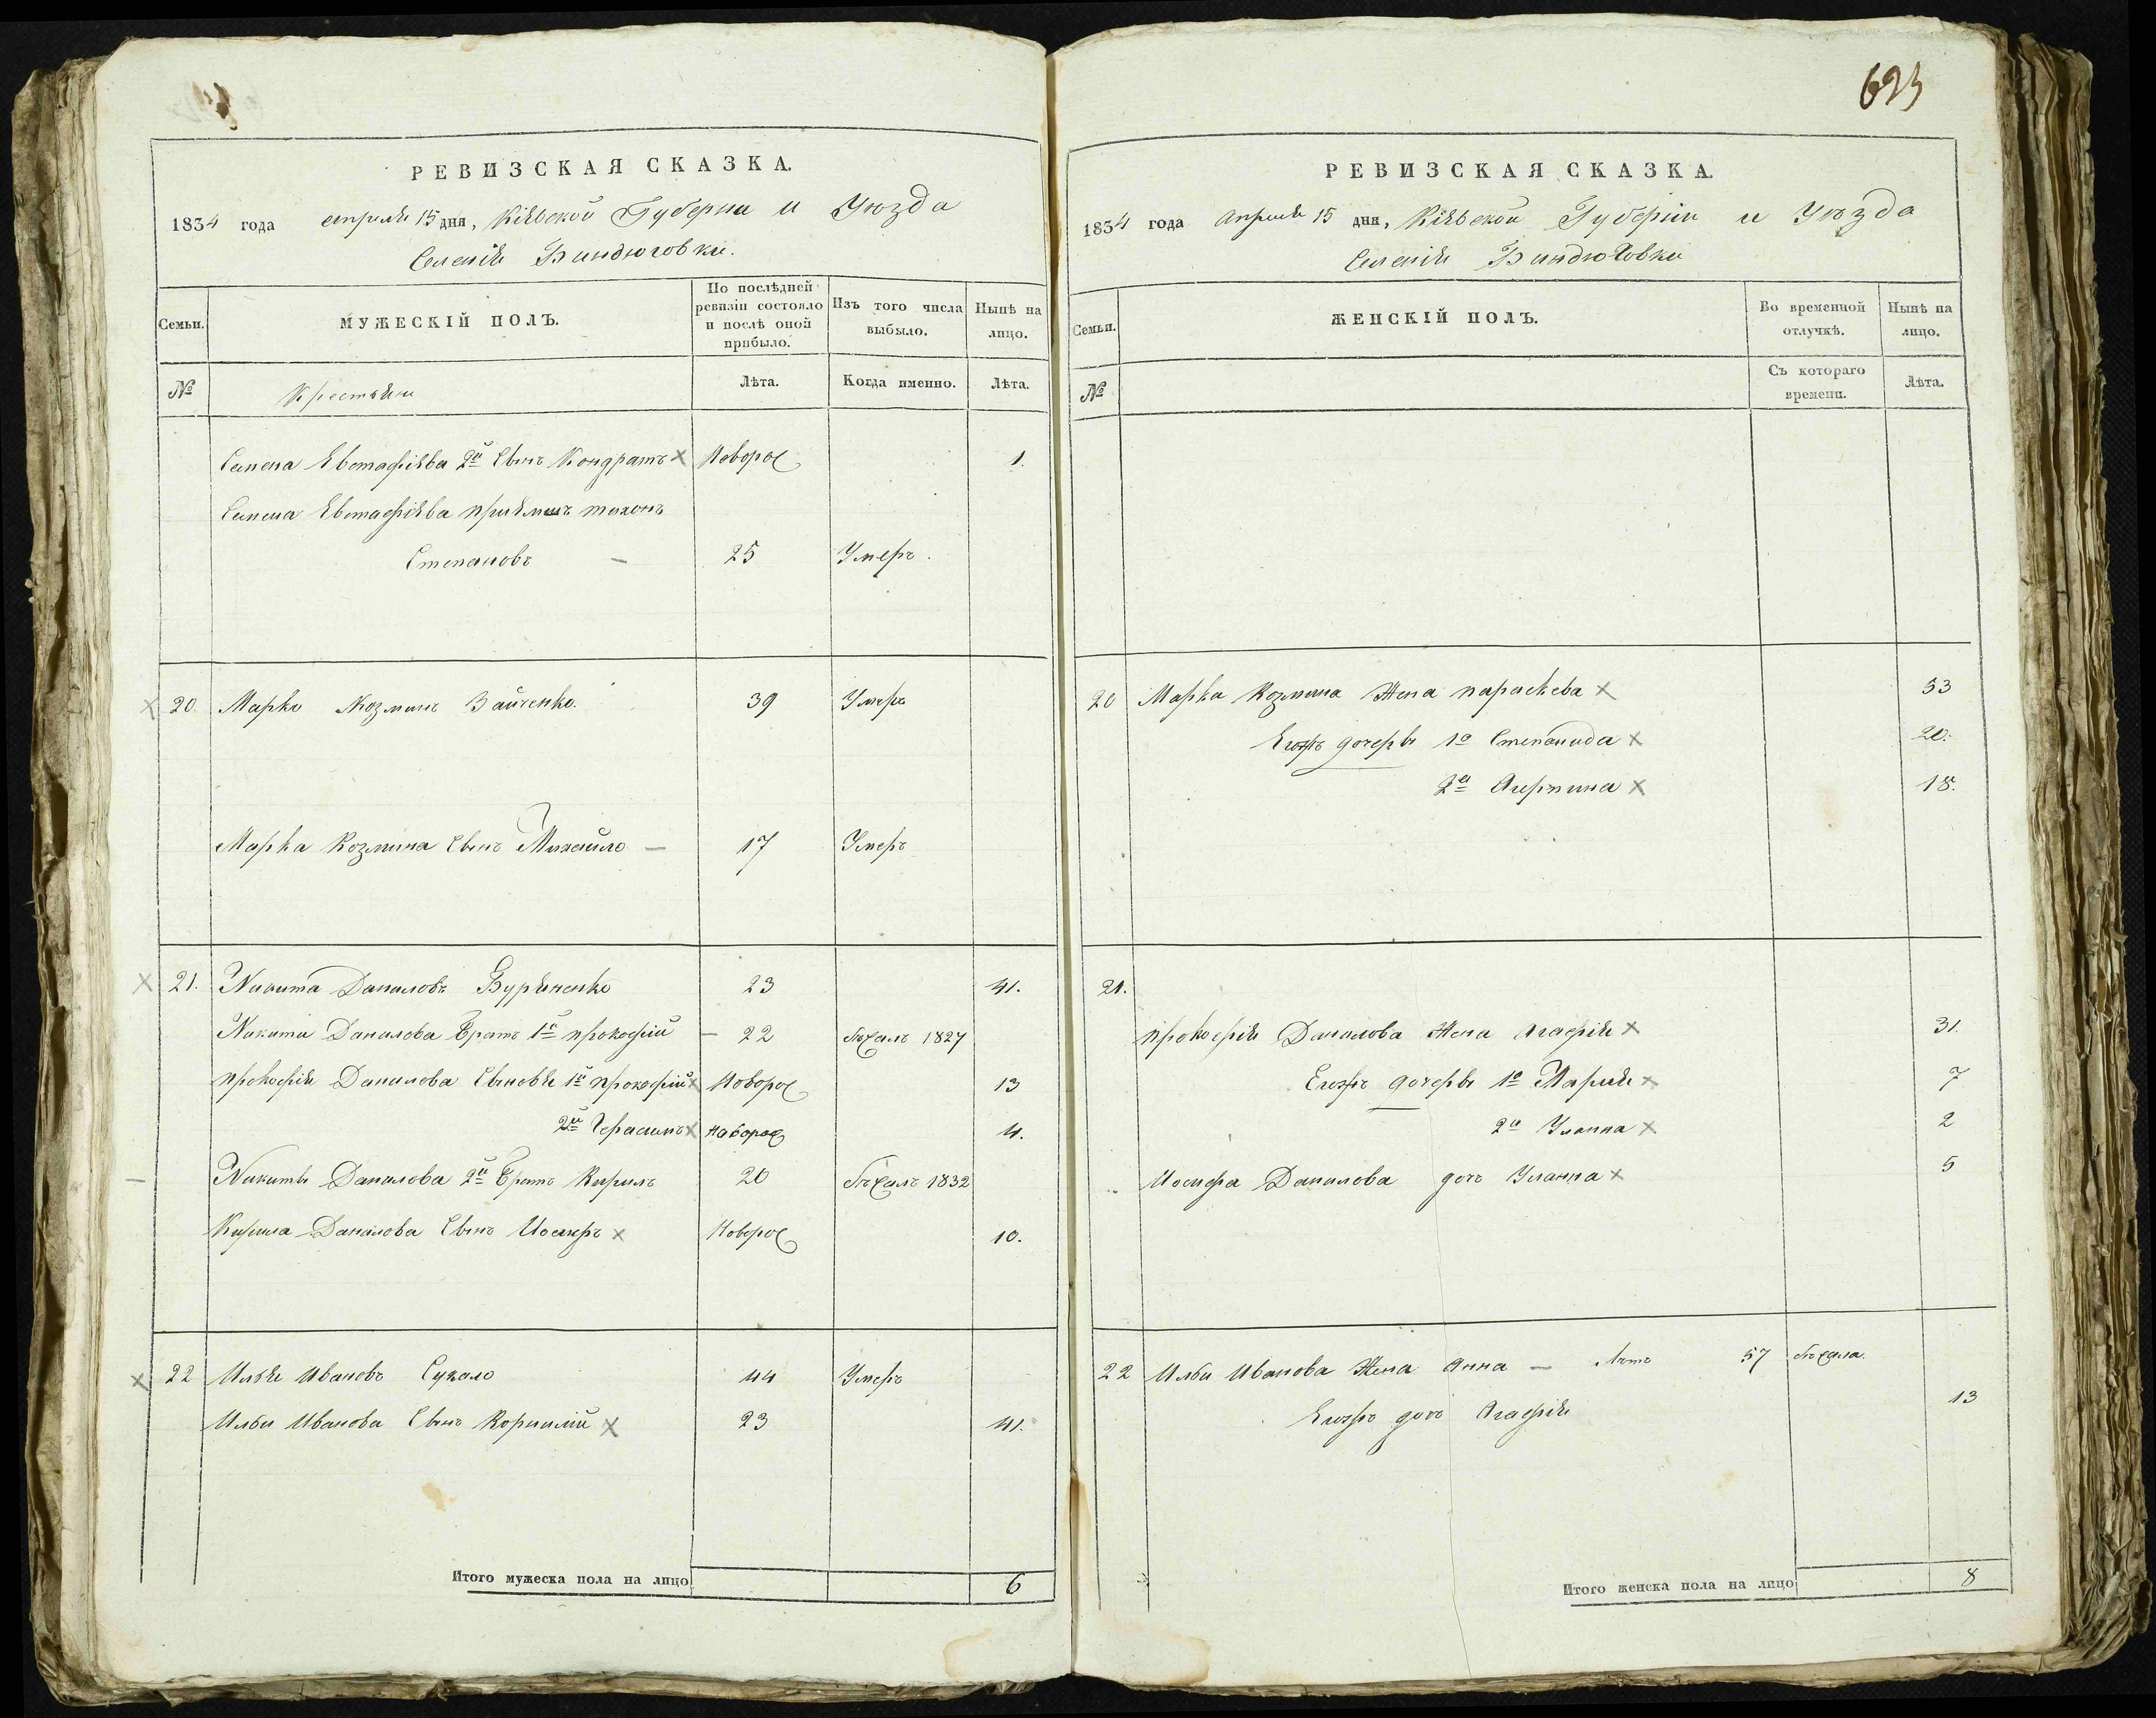 623
РЕВИЗСКАЯ СКАЗКА.
1834 года апреля 15 дня, Кіевской Губерніи и Уезда
Селенія Биндюговки.
Семьи.
МУЖЕСКІЙ ПОЛЪ.
По послѣдней ревизіи состояло и послѣ оной прибыло.
Изъ того числа выбыло.
Нынѣ на лицо.
№
Крестьяни
Лѣта.
Когда именно.
Лѣта.
Семена Евстафіева 2й Сынъ Кондратъ Новорос 1.
Семена Евстафіева пріемышъ тихонъ
Степановъ — 25 Умеръ.
20. Марко Козминъ Зайченко. 39 Умеръ
Марка Козмина Сынъ Михайло — 17 Умеръ
21. Никита Даниловъ Буряченко 23 41.
Никиты Данилова Братъ 1й прокофій — 22 1827
прокофія Данилова Сыновья 1й прокофій Новорос 13
2й Герасимъ Новорос 4.
Никиты Данилова 2й Братъ Кирилъ 20 1832
Кирила Данилова Сынъ Иосифъ Новорос 10.
22 Илья Ивановъ Сукало 44 Умеръ
Ильи Иванова Сынъ Корнилій 23 41.
Итого мужеска пола на лицо 6
РЕВИЗСКАЯ СКАЗКА.
1834 года Апреля 15 дня, Кіевской Губерніи и Уѣзда
Селенія Биндюговки
Семьи.
ЖЕНСКІЙ ПОЛЪ.
Во временной отлучкѣ.
Нынѣ на лицо.
№
Съ котораго времени.
Лѣта.
20 Марка Козмина Жена параскева 53
Егожъ дочери 1я Степанида 20.
2я Агрпина 18.
21.
прокофія Данилова Жена Агафія 31.
Егожъ дочери 1я Марія 7
2я Улянна 2
Иосифа Данилова дочь Улянна 5
22 Ильи Иванова Жена Анна — Летъ 57
Егожъ дочь Агафія 13
Итого женска пола на лицо 8